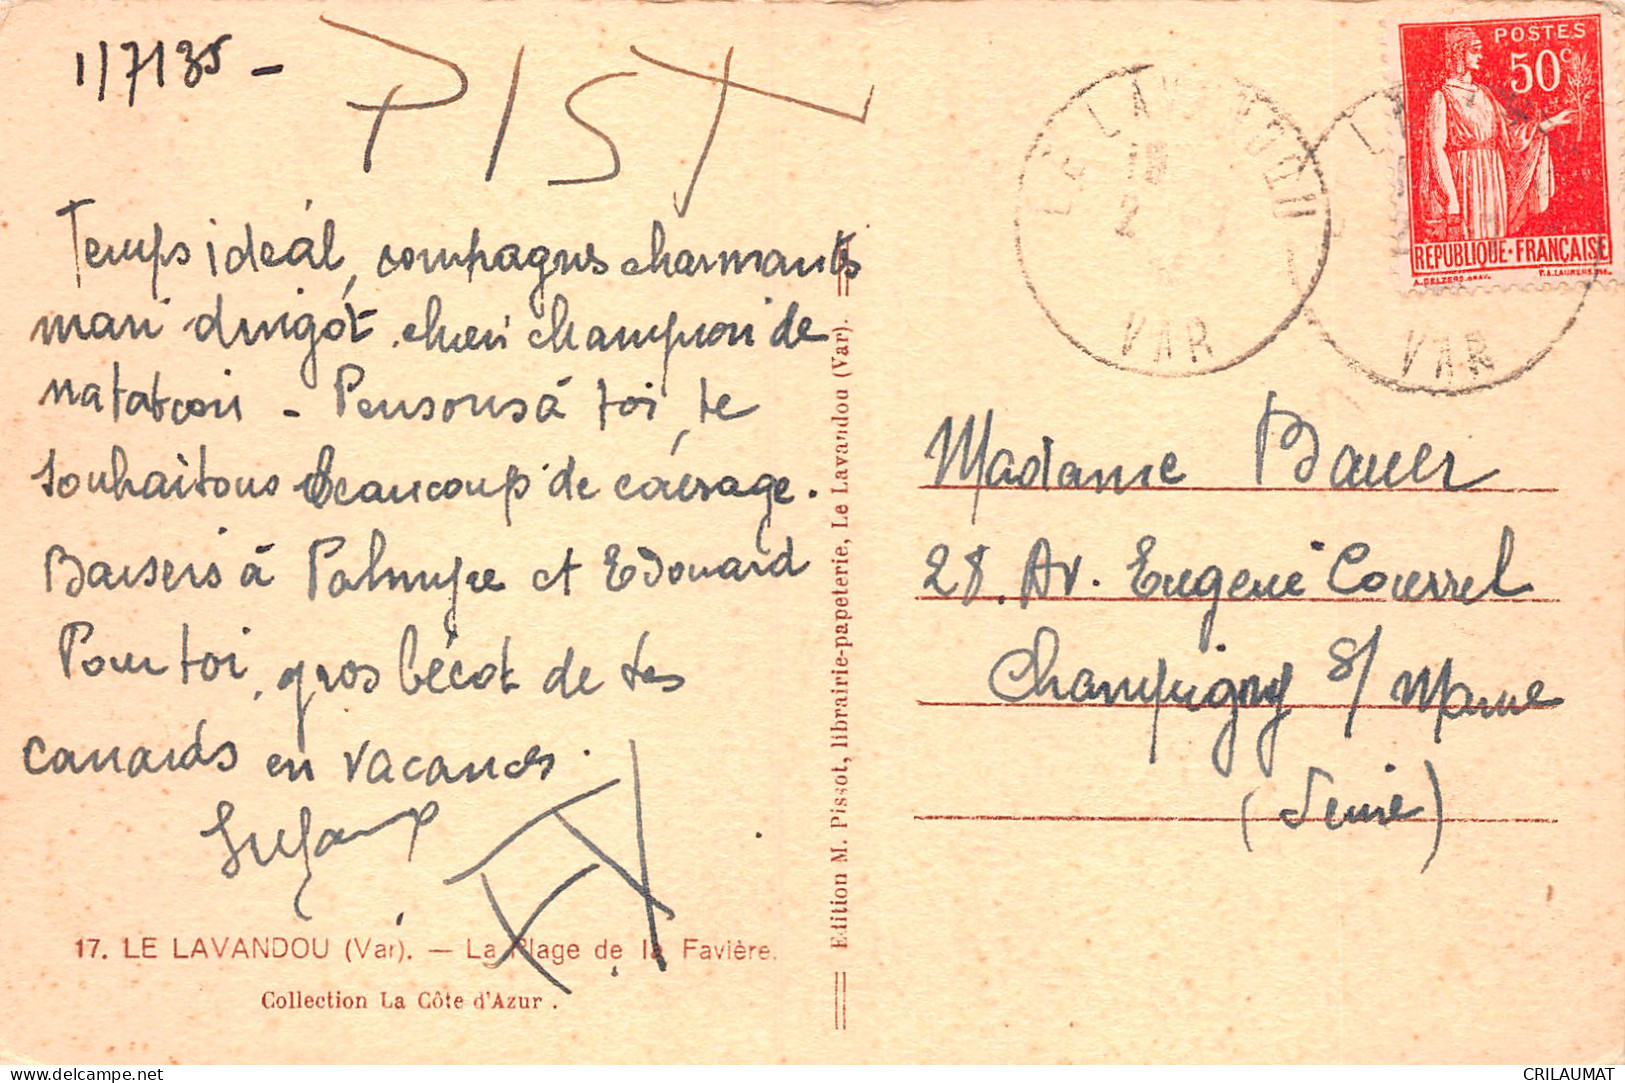 1/7/35 -
PIST
Temps idéal, compagnes charmants
mari dingót, chien champion de
natation - Pensons à toi, te
souhaitons beaucoup de courage.
Baisers à Palmyre et Edouard
Pour toi, gros bécot de tes
canards en vacances.
17. LE LAVANDOU (Var). — La Plage de la Favière.
Collection La Côte d'Azur.
Edition M. Pissot, librairie-papeterie, Le Lavandou (Var).
LE LAVANDOU
15
2 7
VAR
VAR
POSTES
50c
REPUBLIQUE·FRANÇAISE
Madame Bauer
28. Av. Eugenie Courrel
Champigny s/ Marne
(Seine)
CRILAUMAT